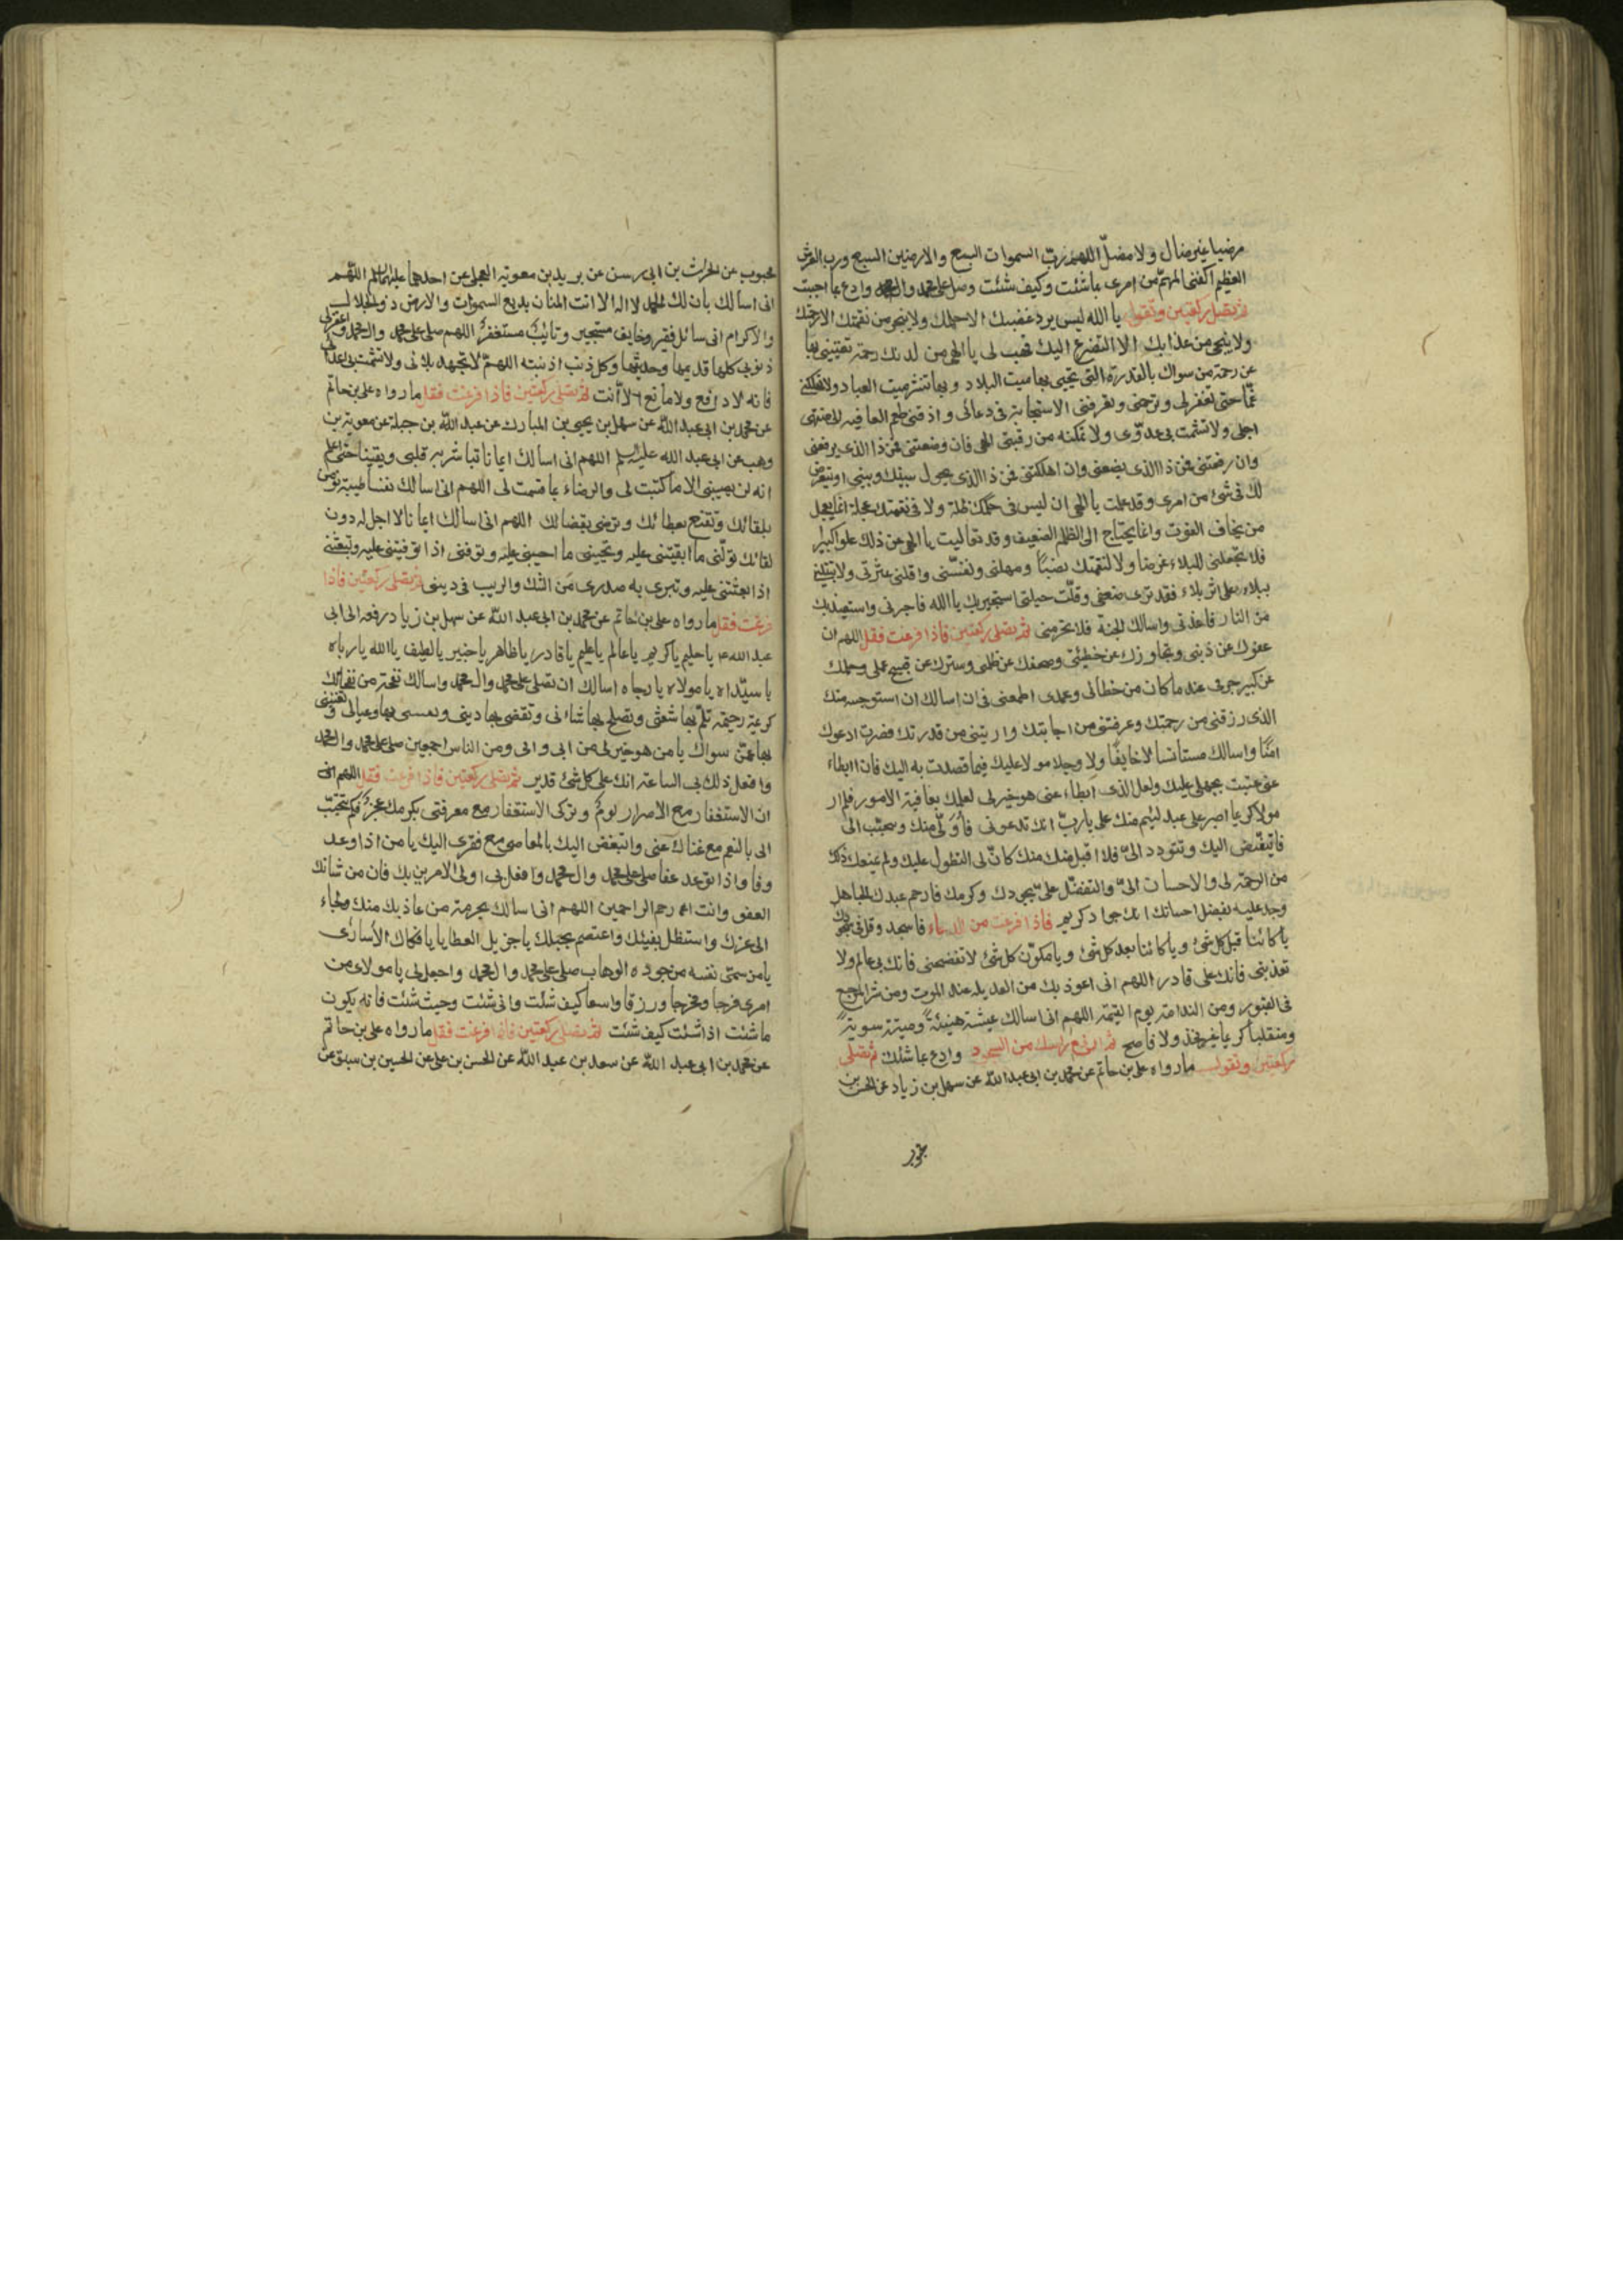 مرضيا غير ضال ولا مضلّ اللهم ربّ السموات السبع والارضين السبع ورب العرش
العظيم اكفنى المهمّ من امرى بما شئت وكيف شئت وصل على محمد وال محمد وادع بما احببت
ثم تصلى ركعتين وتقول يا الله ليس يرد غضبك الا حلمك ولا ينجى من نقمتك الا رحمتك
ولا ينجى من عذابك الا التضرع اليك فهب لى يا الهى من لدنك رحمة تغنينى بها
عن رحمة من سواك بالقدرة التى تحيى بها ميت البلاد وبها تنشر ميت العباد ولا تهلكنى
غمّا حتى تغفر لى وترحمنى وتعرفنى الاستجابة فى دعائى واذقنى طعم العافيه الى منتهى
اجلى ولا تشمت بى عدوّى ولا تمكنه من رقبتى الهى فان وضعتنى فمن ذا الذى يرفعنى
وان رفعتنى فمن ذا الذى يضعنى وان اهلكتنى فمن ذا الذى يحول بينك وبينى او يتعرض
لك فى شئ من امرى وقد علمت يا الهى ان ليس فى حكمك ظلم ولا فى نقمتك عجلة انما يعجل
من يخاف الفوت وانما يحتاج الى الظلم الضعيف وقد تعاليت يا الهى عن ذلك علوا كبيرا
فلا تجعلنى للبلاء غرضا ولا لنقمتك نصبًا ومهلنى ونفسّنى واقلنى عثرتى ولا تبتلينى
ببلاء على اثر بلاء فقد ترى ضعفى وقلّت حيلتى استجير بك يا الله فاجرنى واستعيذ بك
من النار فاعذنى واسالك الجنة فلا تحرمنى ثم تصلى ركعتين فاذا فرغت فقل اللهم ان
عفوك عن ذنبى وتجاوزك عن خطيئتى وصفحك عن ظلمى وسترك عن قبيح عملى وحلمك
عن كبير جرمى عند ما كان من خطائى وعمدى اطمعنى فى ان اسالك ما لا استوجبه منك
الذى رزقتنى من رحمتك وعرفتنى من اجابتك واريتنى من قدرتك فصرت ادعوك
امنًا واسالك مستانسا لا خايفًا ولا وجلا مدلا عليك فيما قصدت به اليك فان ابطاء
عنى عتبت بجهلى عليك ولعل الذى ابطاء عنى هو خير لى لعلمك بعاقبة الامور فلم ار
مولا كريما اصبر على عبد لئيم منك على ياربّ انك تدعونى فاولّى منك وتتحبّب الى
فاتبغّض اليك وتتودد الىّ فلا اقبل منك كانّ لى التطول عليك ولم يمنعك ذلك
من الرحمة لى والاحسان الىّ والتفضّل علىّ بجودك وكرمك فارحم عبدك الجاهل
وجد عليه بفضل احسانك انك جواد كريم فاذا فرغت من الدعاء فاسجد وقل فى سجودك
يا كائنا قبل كل شئ ويا كائنا بعد كل شئ ويا مكوّن كل شئ لا تفضحنى فانك بى عالم ولا
تعذبنى فانك على قادر اللهم انى اعوذ بك من العديله عند الموت ومن شر المرجع
فى القبور ومن الندامة يوم القيمة اللهم انى اسالك عيشة هنيئة وميتة سوية
ومنقلبا كريما غير مخز ولا فاضح ثم ارفع راسك من السجود وادع بما شئت ثم تصلى
ركعتين وتقول ما رواه على بن حاتم عن محمد بن ابى عبد الله عن سهل بن زياد عن الحسن بن
محبوب عن الحارث بن ابى رسن عن بريد بن معوية العجلى عن احدهما عليهما السلم اللهم
انى اسالك بان لك الحمد لا اله الا انت المنان بديع السموات والارض ذو الجلال
والاكرام انى سائل فقير وخايف مستجير وتائب مستغفر اللهم صل على محمد وال محمد واغفر لى
ذنوبى كلها قديمها وحديثها وكل ذنب اذنبته اللهم لا تجهد بلائى ولا تشمت بى اعدائى
فانه لا دافع ولا مانع الا انت ثم تصلى ركعتين فاذا فرغت فقل ما رواه على بن حاتم
عن محمد بن ابى عبد الله عن سهل بن يحيى بن المبارك عن عبد الله بن جبلة عن معوية بن
وهب عن ابى عبد الله عليه السلم اللهم انى اسالك ايمانا تباشر به قلبى ويقينا حتى اعلم
انه لن يصيبنى الا ما كتبت لى والرضاء بما قسمت لى اللهم انى اسالك نفسا طيبة تومن
بلقائك وتقنع بعطائك وترضى بقضائك اللهم انى اسالك ايمانا لا اجل له دون
لقائك تولّنى ما ابقيتنى عليه وتحيينى ما احييتنى عليه وتوفنى اذا توفيتنى عليه وتبعثنى
اذا بعثتنى عليه وتبرى به صدرى من الشك والريب فى دينى ثم تصلى ركعتين فاذا
فرغت فقل ما رواه على بن حاتم عن محمد بن ابى عبد الله عن سهل بن زياد رفعه الى ابى
عبد الله ع يا حليم يا كريم يا عالم يا عليم يا قادر يا ظاهر يا خبير يا لطيف يا الله يا رباه
يا سيّداه يا مولاه يا رجاه اسالك ان تصلى على محمد وال محمد واسالك نفحة من نفحاتك
كريمة رحيمة تلمّ بها شعثى وتصلح بها شانى وتقضى بها دينى وتنعشنى بها وعيالى وتغنينى
بها عمّن سواك يا من هو خير لى من ابى وامى ومن الناس اجمعين صل على محمد وال محمد
وافعل ذلك بى الساعة انك على كل شئ قدير ثم تصلى ركعتين فاذا فرغت فقل اللهم انى
ان الاستغفار مع الاصرار لوم وتركى الاستغفار مع معرفتى بكرمك عجز فكم تتحبّب
الى بالنعم مع غناك عنى واتبغض اليك بالمعاصى مع فقرى اليك يا من اذا وعد
وفا واذا توعد عفا صل على محمد وال محمد وافعل بى اولى الامرين بك فان من شانك
العفو وانت ارحم الراحمين اللهم انى اسالك بحرمة من عاذ بك منك ولجاء
الى عزك واستظل بفيئك واعتصم بحبلك يا جزيل العطايا يا فكاك الأسارى
يا من سمّى نفسه من جوده الوهاب صل على محمد وال محمد واجعل لى يا مولاى من
امرى فرجا ومخرجا ورزقا واسعا كيف شئت وانى شئت وحيث شئت فانه يكون
ما شئت اذا شئت كيف شئت ثم تصلى ركعتين فاذا فرغت فقل ما رواه على بن حاتم
عن محمد بن ابى عبد الله عن سعد بن عبد الله عن الحسن بن على عن الحسين بن سيف عن